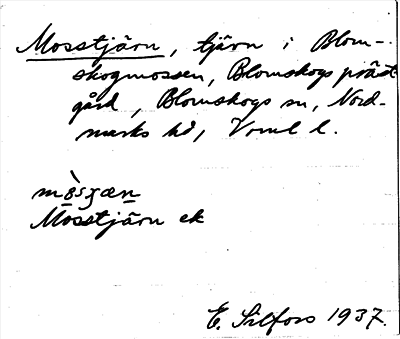 Mosstjärn, tjärn i Blom-
skogmossen, Blomskogs präst
gård, Blomskogs sn, Nord-
marks hd, Vrml l.
Mosstjärn ek
E. Silfors 1937.